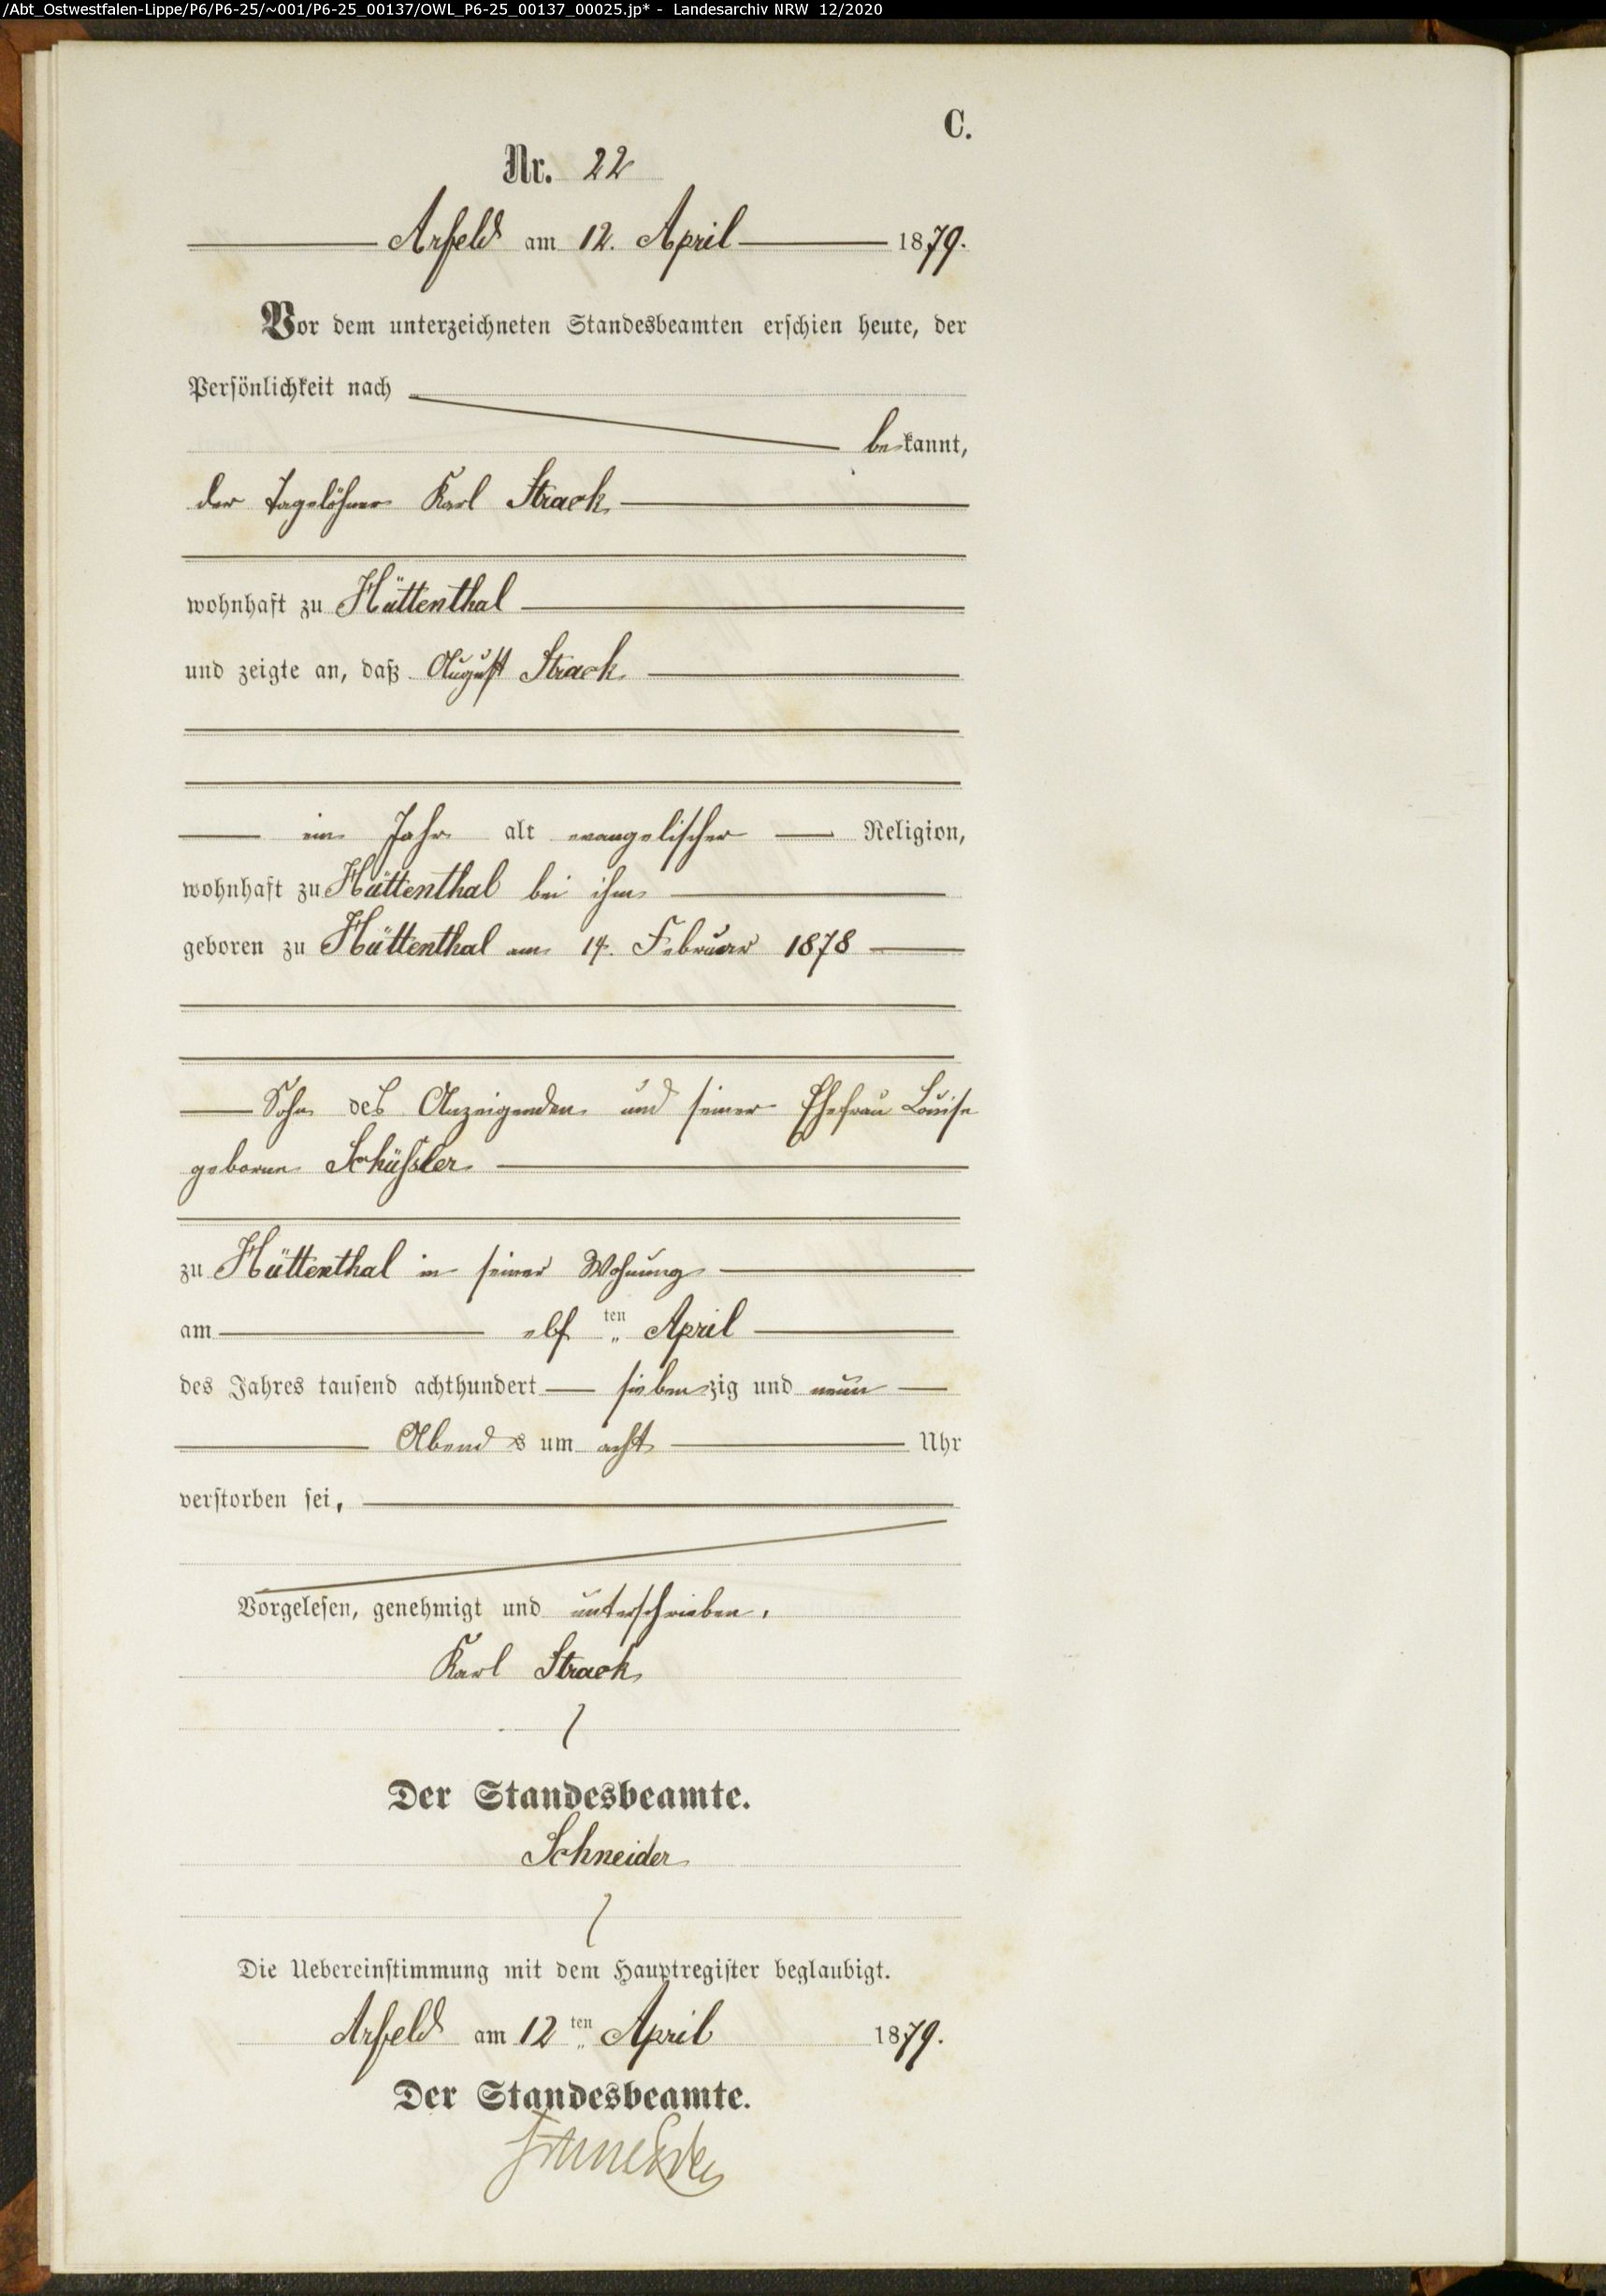 /Abt_Ostwestfalen-Lippe/P6/P6-25/~001/P6-25_00137/OWL_P6-25_00137_00025.jp* - Landesarchiv NRW 12/2020
C.
Nr. 22
Arfeld am 12. April 1879.
Vor dem unterzeichneten Standesbeamten erschien heute, der
Persönlichkeit nach
bekannt,
der Tagelöhner Karl Strack
wohnhaft zu Hüttenthal
und zeigte an, daß August Strack
ein Jahr alt evangelischer Religion,
wohnhaft zu Hüttenthal bei ihm
geboren zu Hüttenthal am 14. Februar 1878
Sohn des Anzeigenden und seiner Ehefrau Louise
geborne Schüßler
zu Hüttenthal in seiner Wohnung
am elf ten April
des Jahres tausend achthundert siebenzig und neun
Abends um acht Uhr
verstorben sei,
Vorgelesen, genehmigt und unterschrieben.
Karl Strack
Der Standesbeamte.
Schneider
Die Uebereinstimmung mit dem Hauptregister beglaubigt.
Arfeld am 12ten April 1879.
Der Standesbeamte.
Schneider